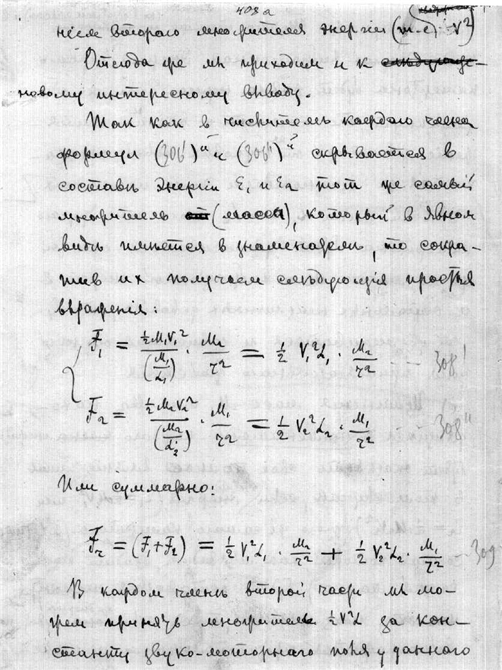 403 а
после втораго множителя энергіи (m.е. v²)
Отсюда же мы приходим и к
новому интересному выводу.
Так как в числитель каждаго члена
формул (306')й и (306")й скрывается в
составѣ энергіи E₁ и E₂ тот же самый
множитель (масса), который в явном
видѣ имѣется в знаменателѣ, то сокра-
тив их получаем слѣдующія простыя
выраженія:
F₁ = ½M₁V₁² / (M₁/L₁) · M₂/r² = ½ V₁²L₁ · M₂/r² -- 308'
F₂ = ½M₂V₂² / (M₂/L₂) · M₁/r² = ½ V₂²L₂ · M₁/r² -- 308"
Или суммарно:
F₂ = (F₁+F₂) = ½ V₁²L₁ · M₂/r² + ½ V₂²L₂ · M₁/r² -- 309
В каждом членѣ второй части мы мо-
жем принять множитель ½V²L за кон-
станту звуко-моторнаго поля у даннаго